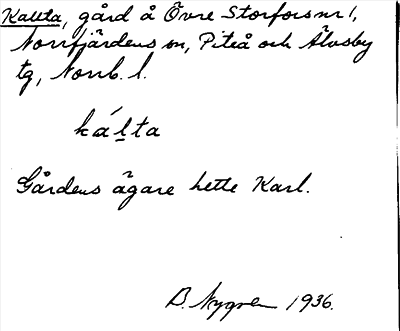 Kallta, gård å Övre Storfors nr 1,
Norrfjärdens sn, Piteå och Älvsby
tg, Norrb. l.
ká́l̠ta
Gårdens ägare hette Karl.
B. Nygren 1936.